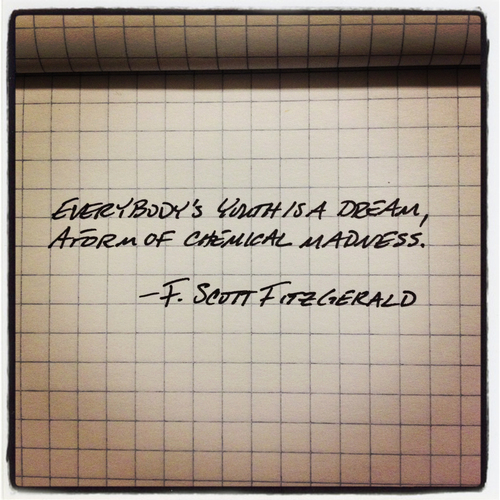 EVERYBODY'S YOUTH IS A DREAM,
A FORM OF CHEMICAL MADNESS.
—F. SCOTT FITZGERALD